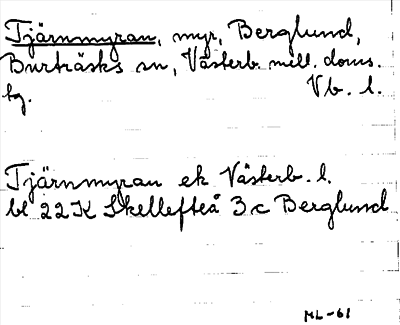 Tjärnmyran, myr, Berglund,
Burträsks sn, Västerb. mell. doms.
tg. Vb. l.
Tjärnmyran ek Västerb. l.
bl 22K Skellefteå 3c Berglund
ML-61